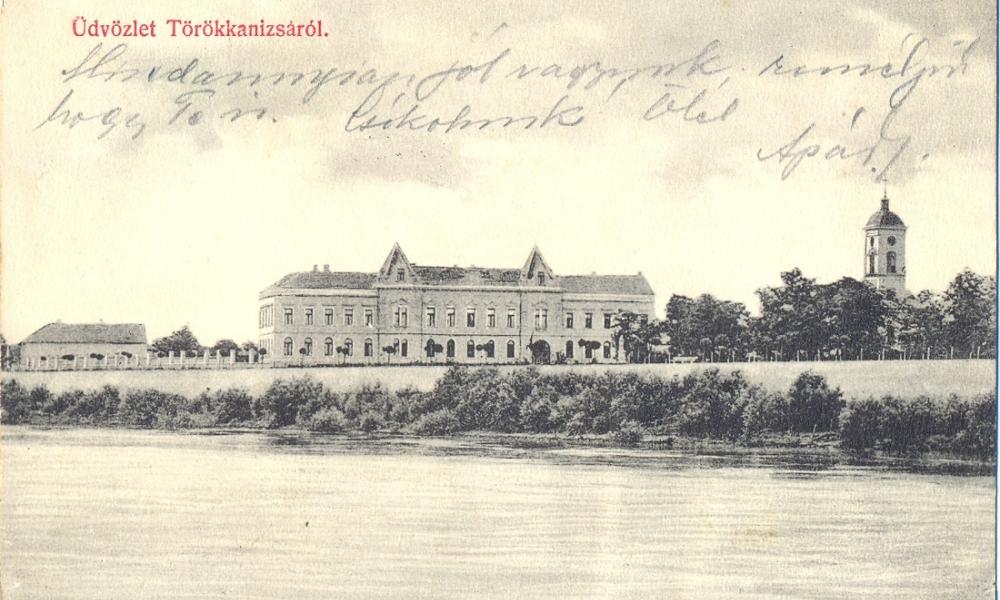 Üdvözlet Törökkanizsáról.
Mindannyian jól vagyunk, reméljük
hogy Te is. Csókolunk Ölel
Apád.